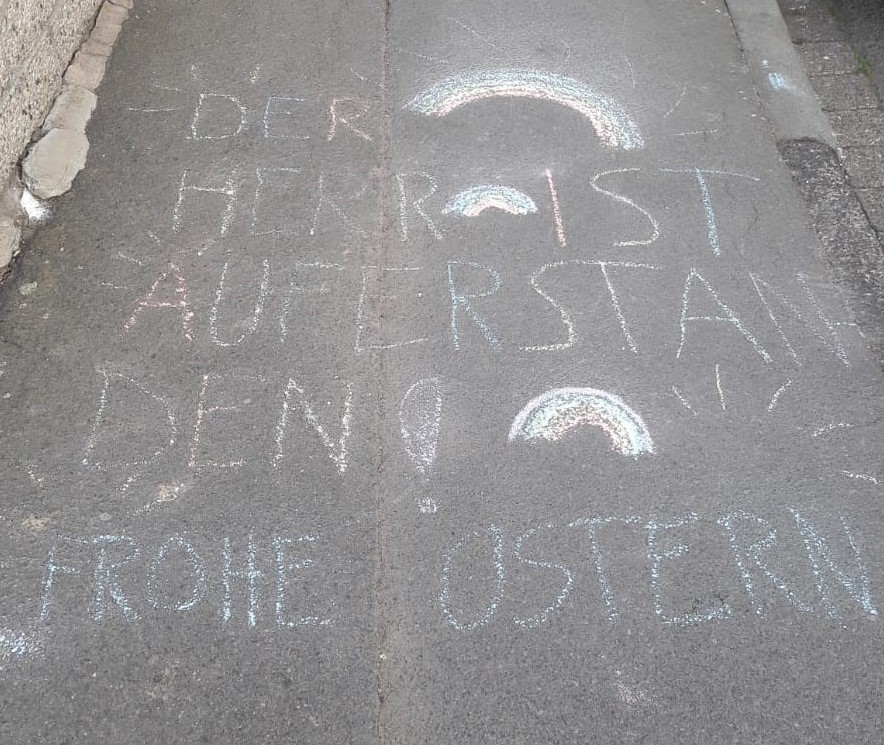 DER
HERR IST
AUFERSTAN
DEN!
FROHE OSTERN